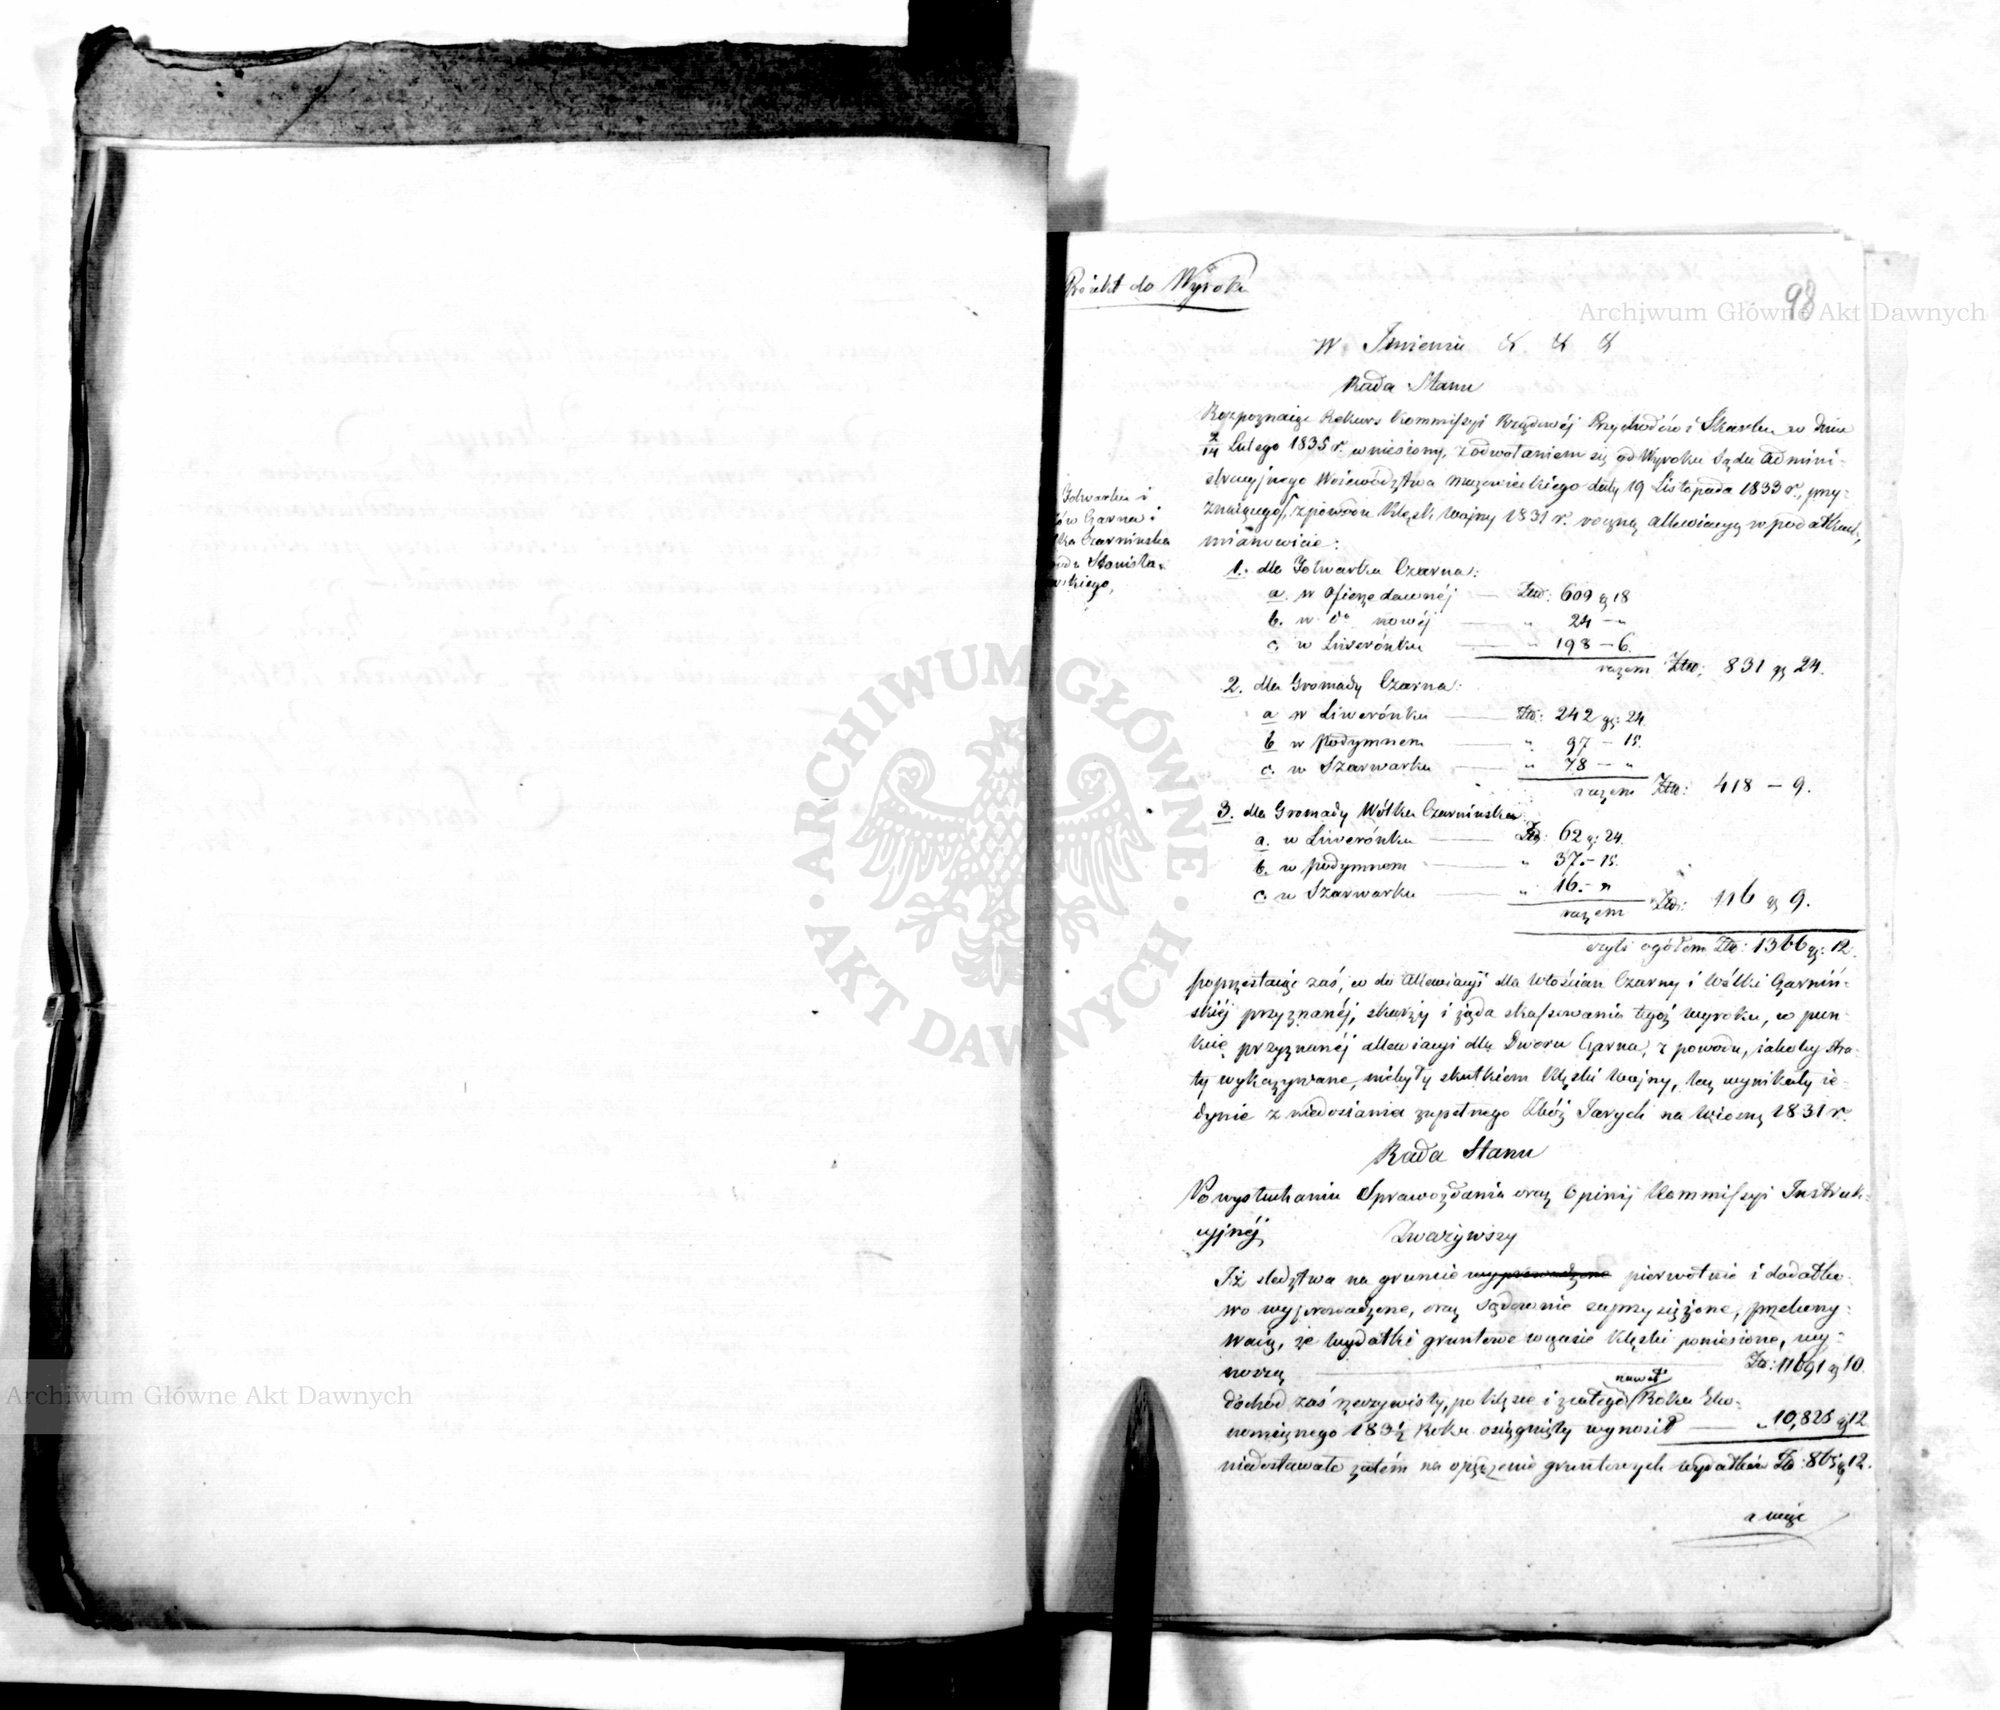 Projekt do Wyroku
98
W Imieniu & & &
Rada Stanu
Rozpoznaiąc Rekurs Kommissyi Rządowéj Przychodów i Skarbu w dniu
2/14 Lutego 1835 r. wniesiony, z odwołaniem się od Wyroku Sądu Admini-
stracyjnego Woiewództwa Mazowieckiego daty 19 Listopada 1833 r., przy-
znaiącego, z powodu klęsk Woyny 1831 r. roczną allewiacyą w podatkach,
mianowicie:
Folwarku i
Czarna i
Czarnińska
Stanisła-
wskiego,
1. dla Folwarku Czarna:
a. w Ofierze dawnéj — Złp: 609 gr 18
b. w do nowéj — " 24 — "
c. w Liwerónku — " 198 — 6.
razem Złp: 831 gr 24.
2. dla Gromady Czarna:
a w Liwerónku — Złp: 242 gr: 24.
b w Podymnem — " 97 — 15.
c. w Szarwarku — " 78 — "
razem Złp: 418 — 9.
3. dla Gromady Wólka Czarnińska
a. w Liwerónku — Złp: 62 gr: 24.
b. w Podymnem — " 37. — 15.
c. w Szarwarku — " 16. — "
razem Złp: 116 gr 9.
czyli ogółem Złp: 1366 gr: 12.
poprzestaiąc zaś, co do Allewiacyi dla Włościan Czarny i Wólki Czarniń-
skiéj przyznanéj, skarży i żąda skassowania tegoż wyroku, w pun-
kcie przyznanéj allewiacyi dla Dworu Czarna, z powodu, iakoby stra-
ty wykazywane, niebyły skutkiem klęski Woyny, lecz wynikały ie-
dynie z niedosiania zupełnego Zbóż Jarych na wiosnę 1831 r.
Rada Stanu
Po wysłuchaniu Sprawozdania oraz Opinij Kommissyi Instruk-
cyjnéj Zważywszy
Iż śledztwa na gruncie wyprowadzone pierwotnie i dodatko-
wo wyprowadzone, oraz Sądownie zaprzysiężone, przekony-
waią, że wydatki gruntowe w czasie klęski poniesione, wy-
noszą — Złp: 11691 gr 10.
dochód zaś rzeczywisty, po klęsce i z całego nawet Roku Eko-
nomicznego 183½ Roku osiągnięty wynosił — " 10,825 gr 12
niedostawało zatém na opędzenie gruntowych wydatków Złp: 865 gr 12.
a więc
Archiwum Główne Akt Dawnych
Archiwum Główne Akt Dawnych
ARCHIWUM GŁÓWNE · AKT DAWNYCH ·